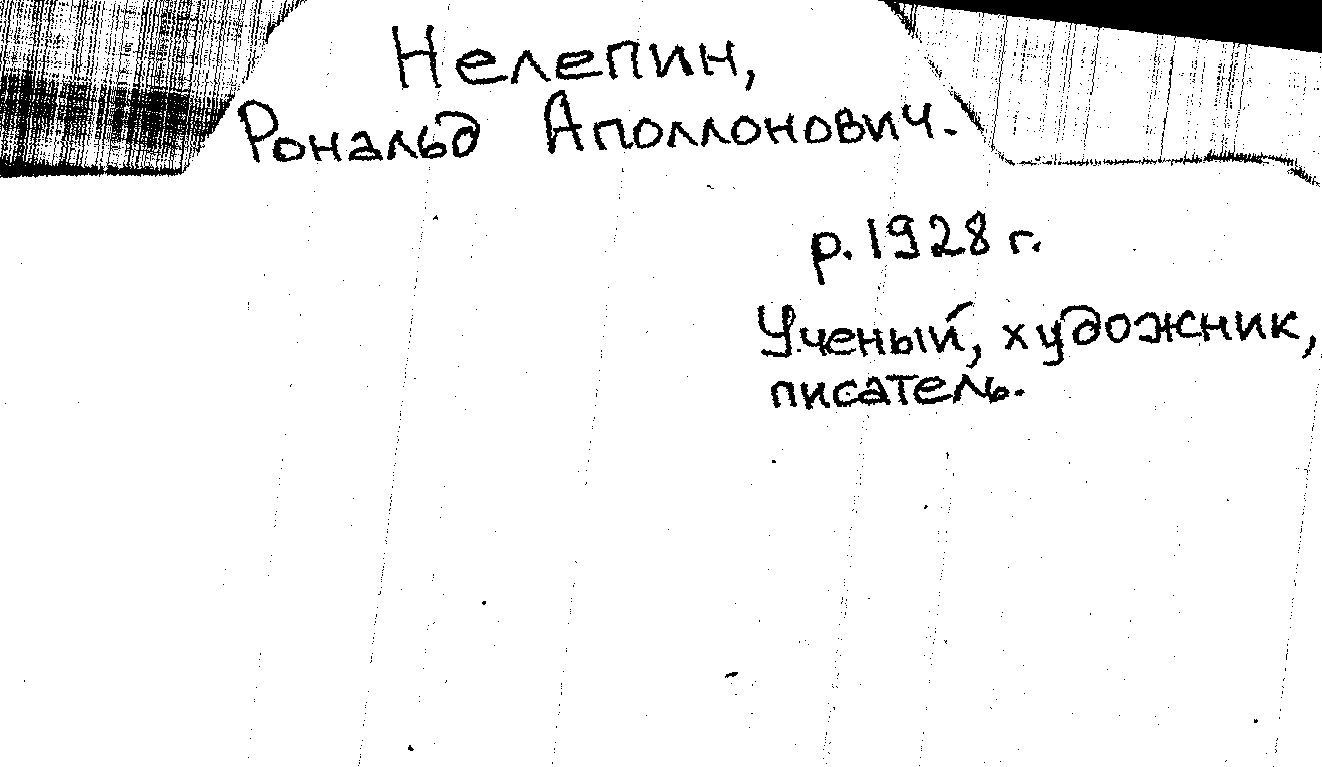 Нелепин,
Рональд Аполлонович.
р. 1928 г.
Ученый, художник,
писатель.